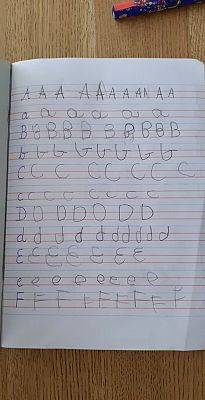 A A A A A A A A A A A
a a a a a a
B B B B B B B B B
b b b b b b b b
C C C C C C C C
c c c c c c c c
D D D D D D D D
d d d d d d d d d d
E E E E E E E E
e e e e e e e e
F F F F F F F F F